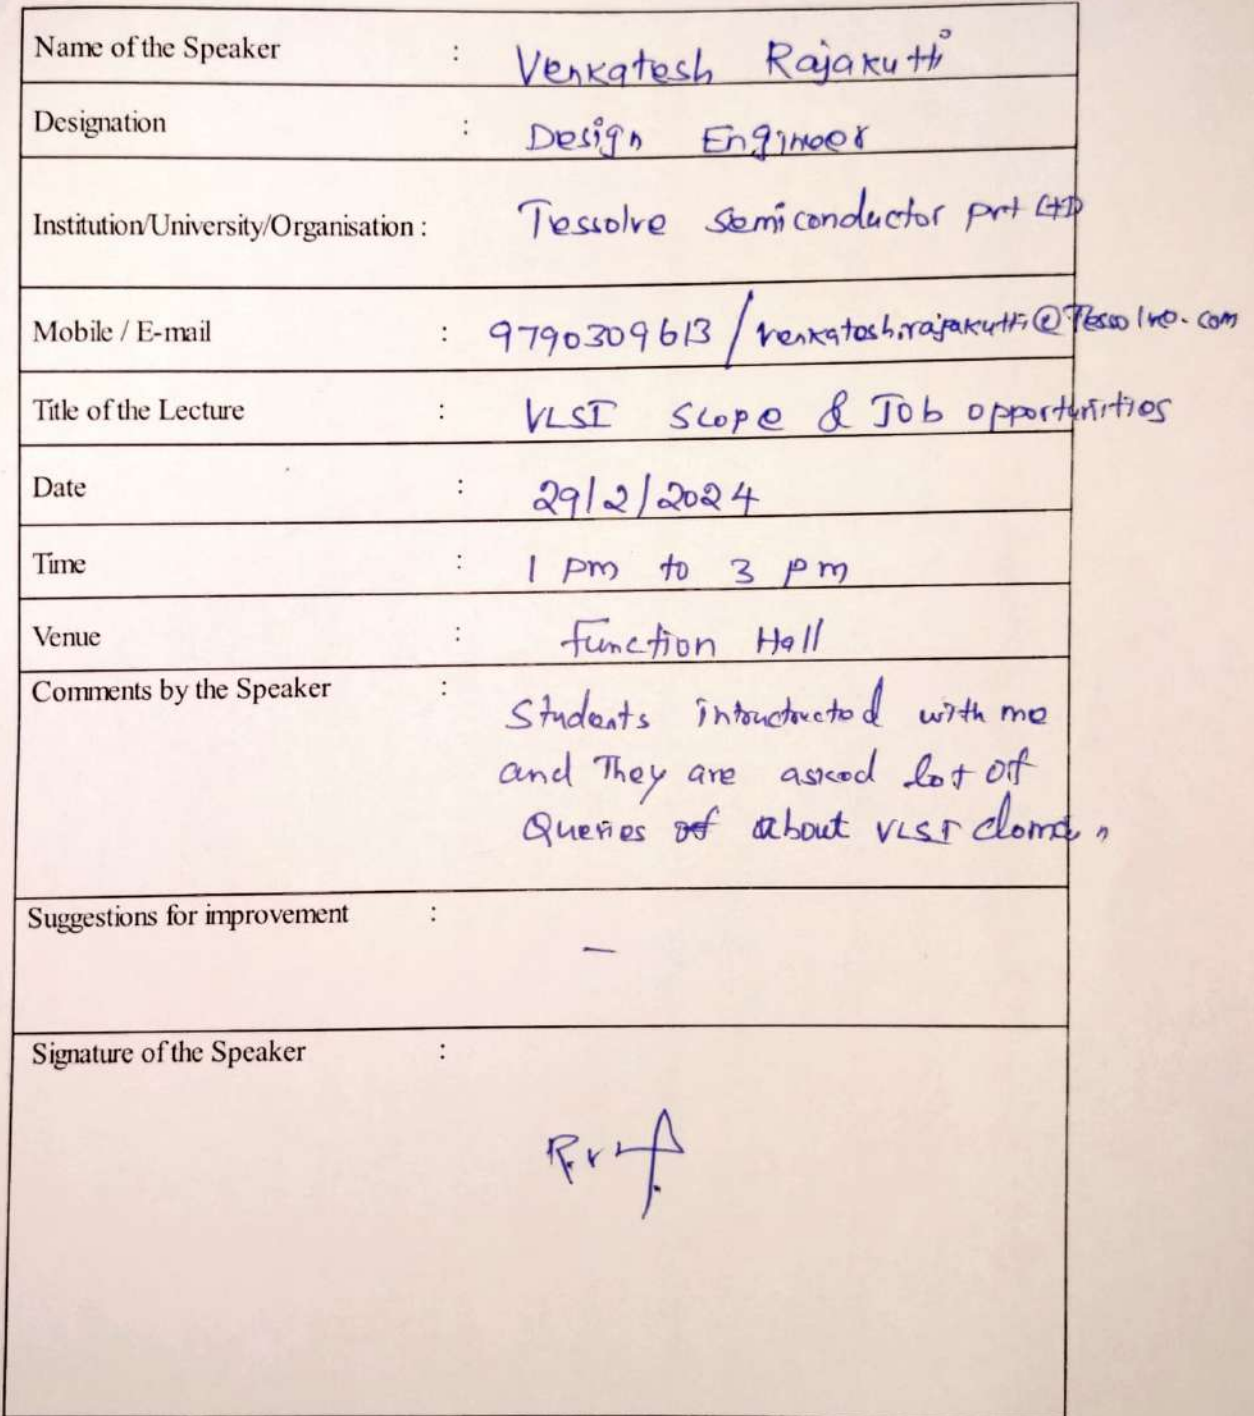 Name of the Speaker : Venkatesh Rajakutti
Designation : Design Engineer
Institution/University/Organisation : Tessolve semiconductor pvt LTD
Mobile / E-mail : 9790309613 / venkatesh.rajakutti@Tessolve.com
Title of the Lecture : VLSI Scope & Job opportunities
Date : 29/2/2024
Time : 1 pm to 3 pm
Venue : Function Hall
Comments by the Speaker : Students with me
and They are asked lot off
Queries about VLSI domain
Suggestions for improvement : —
Signature of the Speaker :